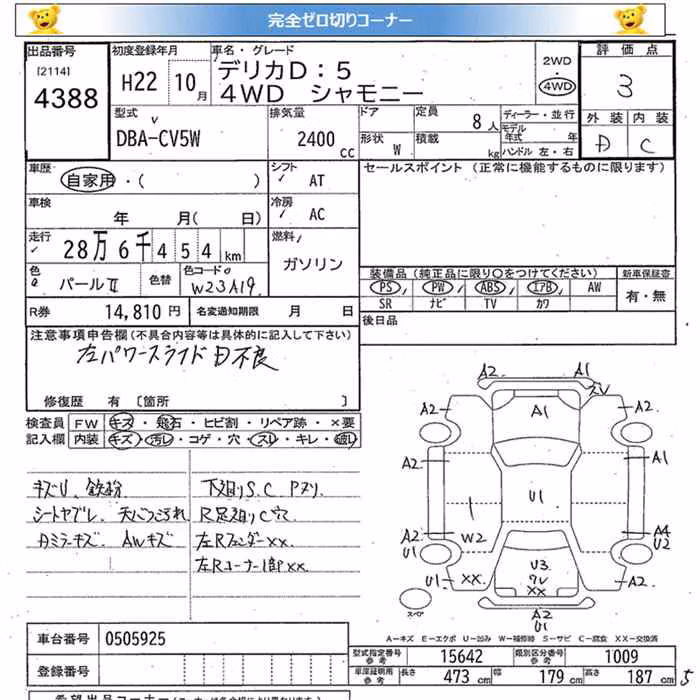 完全ゼロ切りコーナー
出品番号
[2114]
4388
初度登録年月
H22 10月
車名・グレード
デリカD:5
4WD シャモニー
2WD
4WD
評価点
3
外装 内装
D C
型式
DBA-CV5W
排気量
2400 cc
ドア
形状 W
定員 8人
積載 kg
ディーラー・並行
モデル年式 年
ハンドル 左・右
車歴
自家用・( )
シフト
AT
セールスポイント (正常に機能するものに限ります)
車検
年 月( 日)
冷房
AC
走行
28万6千454km
燃料
ガソリン
色
パールⅡ
色替
色コードo
W23A19
装備品(純正品に限り○をつけてください)
新車保証書
PS PW ABS エアB AW
有・無
SR ナビ TV カワ
R券 14,810円
名変通知期限 月 日
後日品
注意事項申告欄(不具合内容等は具体的に記入して下さい)
左パワースライドD不良
修復歴 有 〔箇所 〕
検査員記入欄
FW キズ・飛石・ヒビ割・リペア跡・×要
内装 キズ・汚レ・コゲ・穴・スレ・キレ・破レ
キズU、鉄粉
シートヤブレ、天バつこぅれ
AWキズ
下廻りS.C Pヌリ
R足廻りC穴
左Rフェンダーxx.
左Rコーナー1部xx.
A2 A1
A2 A1 A2
A2 A1
U1
A2 W2 A4
U1 U2
U1 XX U3 U1
ワレ
XX
A2
U1
スペア
A-キズ E-エクボ U-凹み W-補修跡 S-サビ C-腐食 XX-交換済
車台番号 0505925
登録番号
型式指定番号 参考 15642
類別区分番号 参考 1009
車庫証明用 参考 長さ 473 cm 幅 179 cm 高さ 187 cm
希望出品コーナー